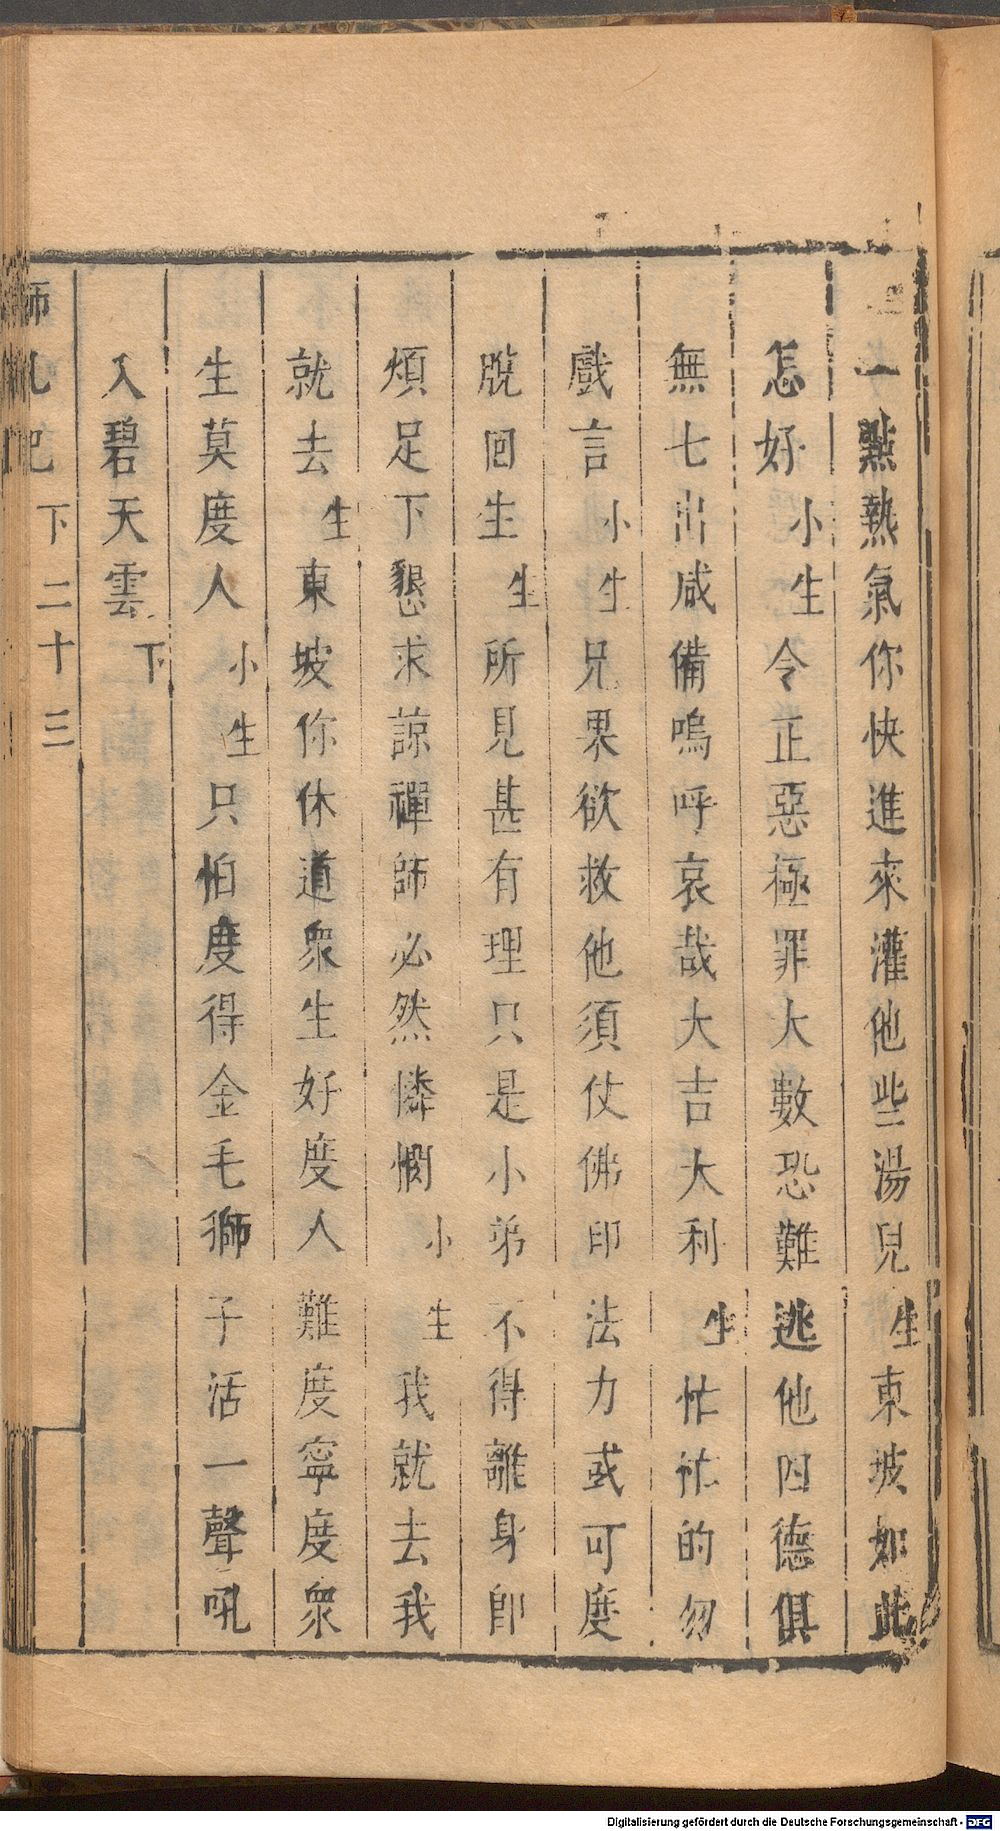 一點熱氣你快進來灌他些湯兒生東坡如此
怎好小生令正惡極罪大數恐難逃他四德俱
無七出咸備嗚呼哀哉大吉大利生忙忙的勿
戲言小生兄果欲救他須仗佛印法力或可度
脫回生生所見甚有理只是小弟不得離身卽
煩足下懇求諒禪師必然憐憫小生我就去我
就去生東坡你休道衆生好度人難度寧度衆
生莫度人小生只怕度得金毛獅子活一聲吼
入碧天雲下
師吼記下二十三
Digitalisierung gefördert durch die Deutsche Forschungsgemeinschaft - DFG